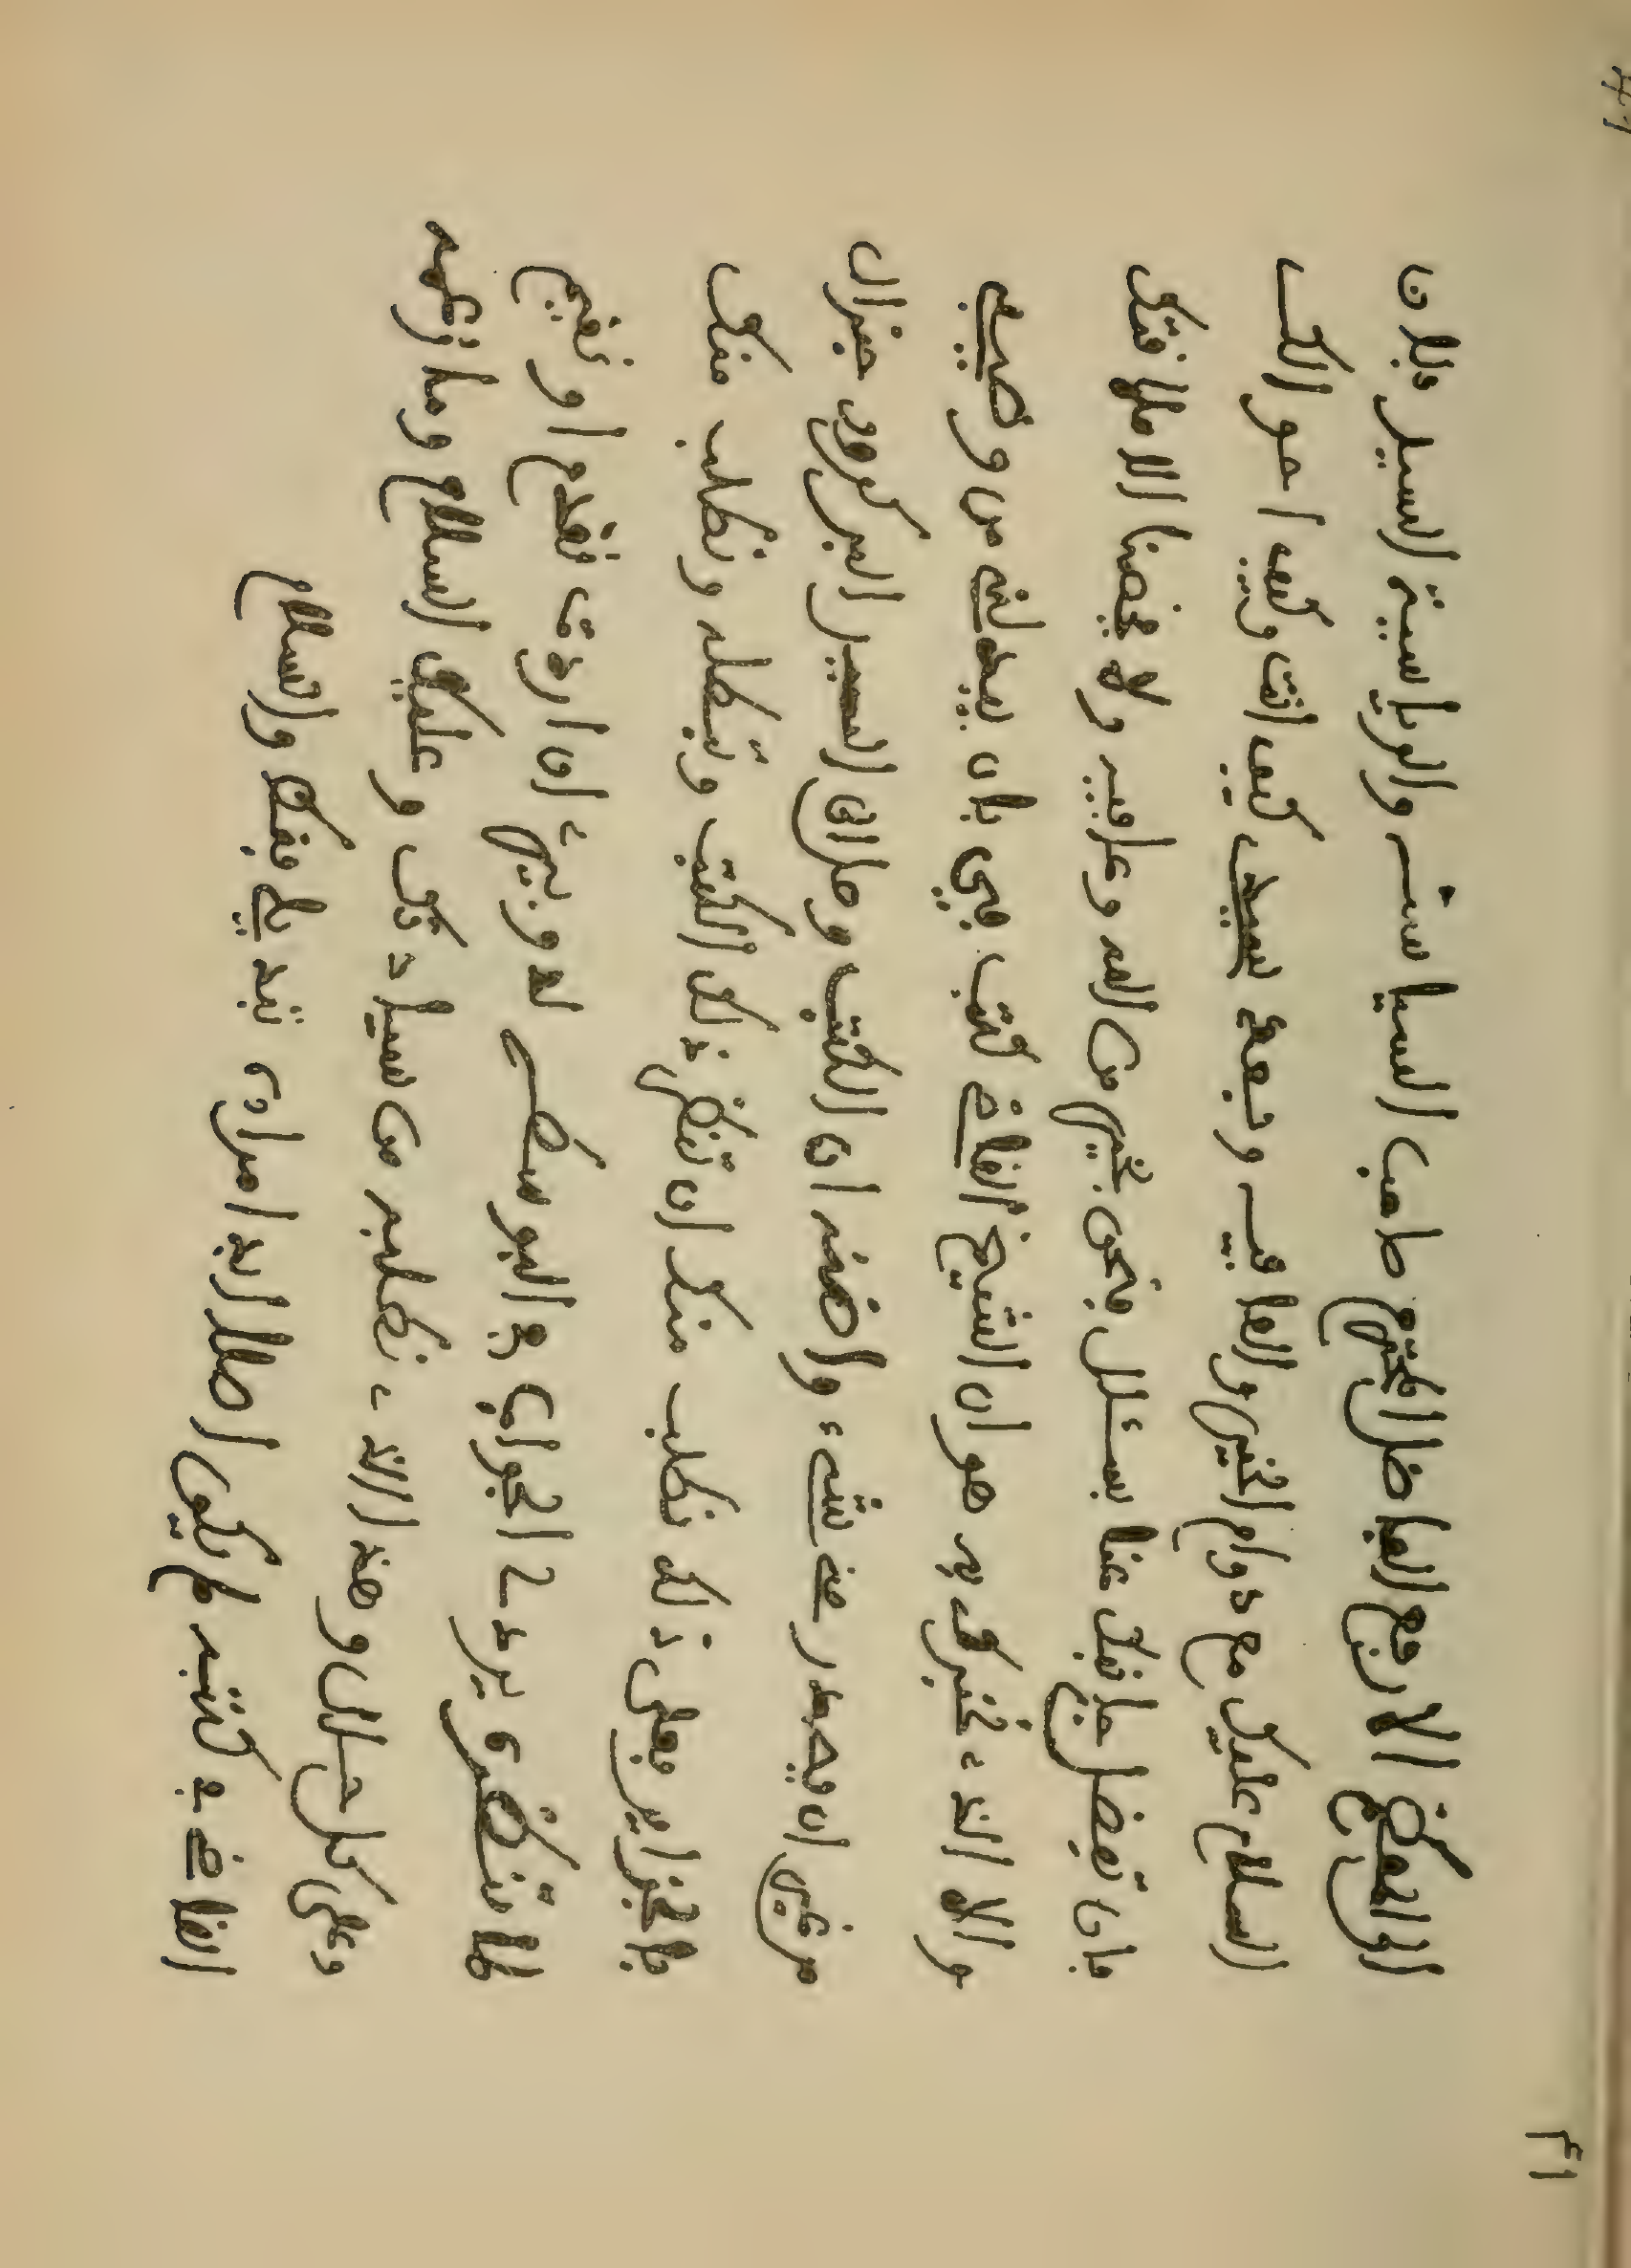 الى المعظم الارفع الفاضل المحترم صاحب السياسة والرياسة السيد دلبرن
السلام عليك مع دوام الخير والعافية وبعد سيدي كيف انت وكيف احوالك
فان تفضل جنابك عنا بسئل فنحن بخير من الله وعافيه ولا يخصنا الا ملاقتك
والا الذى نخبرك به هو ان الشيخ القاضى كتب فيى بان يبدلنى من وضيفى
من غير ان يصدر عنى شىء واضنه ان الكتب وصلك ان السيد البركروى جنرال
فالجزاير فعلى ذلك نطلب منك ان تنظر ذلك الكتب وتبطله ونطلب منك
لما تنظرى يرد لى الجواب في البوسطى لدوبيرى ان اردت نقدم او نقيم
وعلى كل حال وهذا الذى نطلبه من سيادتك وعليك السلام وما تركمه
القاضى في كتبه لم يكون اصلا ابدا مرادى نبد يلى فقط والسلام
٤١
41